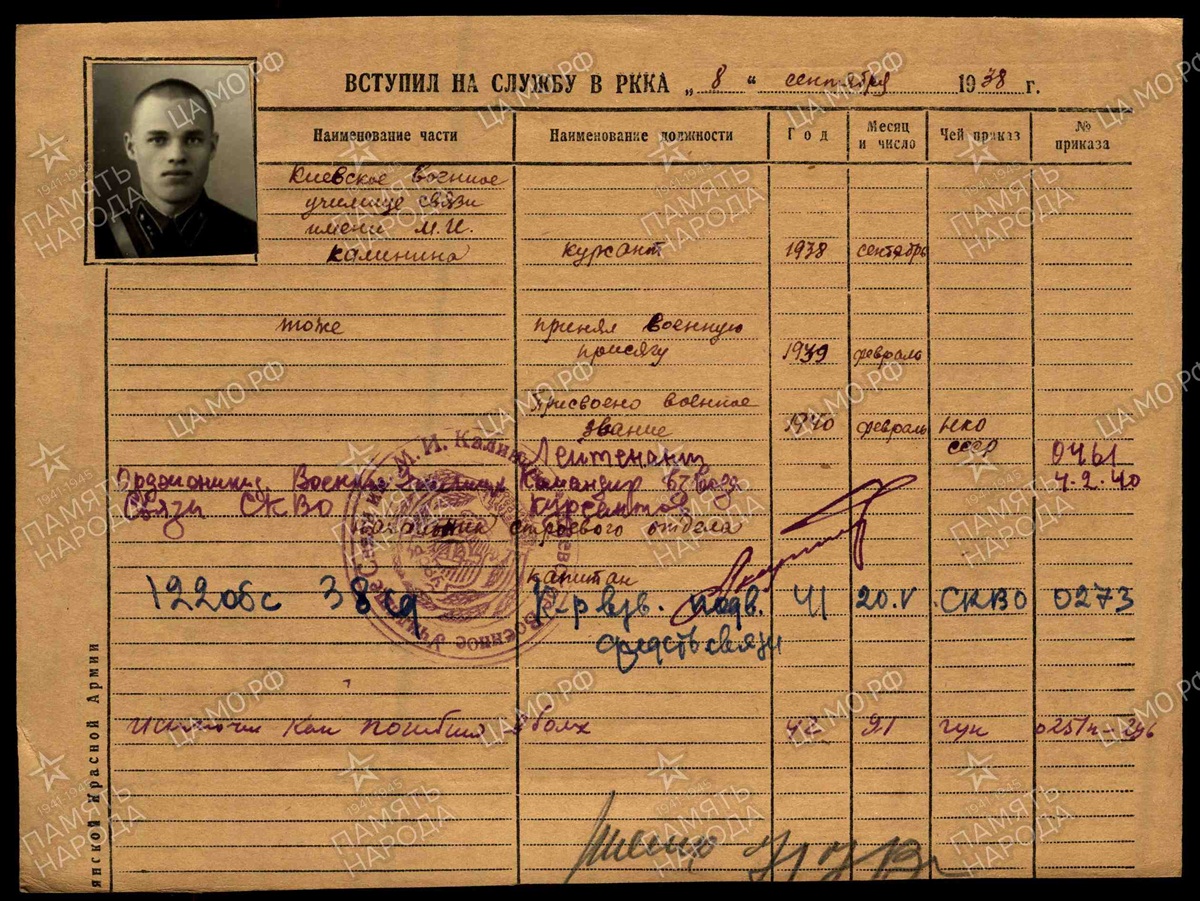 ВСТУПИЛ НА СЛУЖБУ В РККА „ 8 “ сентября 1938 г.
Наименование части Наименование должности Год Месяц и число Чей приказ № приказа
Киевское военное
училище связи
имени М.И.
Калинина курсант 1938 сентябрь
тоже принял военную
присягу 1939 февраль
Присвоено военное
звание 1940 февраль НКО
СССР
Лейтенант 0461
Орджоникид. Военное Училище Командир взвода 4.2.40
Связи СКВО Курсантов
начальник строевого отдела
капитан
122 обс 38 сд К-р взв. подв. 41 20.V СКВО 0273
средств связи
Исключен как погибший в боях 42 9/ гук
янской Красной Армии
М. И. Калин
Военное Училище Связи им.
ЦА МО РФ
1941-1945
ПАМЯТЬ
НАРОДА